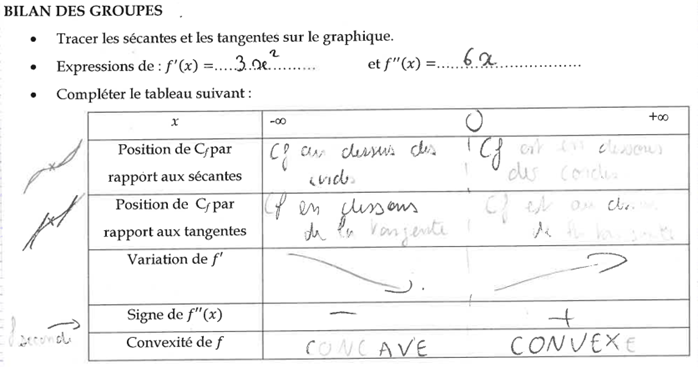 BILAN DES GROUPES
• Tracer les sécantes et les tangentes sur le graphique.
• Expressions de : f'(x) =.....3x².......... et f''(x) =......6x..............................
• Compléter le tableau suivant :
x -∞ 0 +∞
Position de Cf par Cf au dessus des Cf est en dessous
rapport aux sécantes cordes des cordes
Position de Cf par Cf en dessous Cf est au
rapport aux tangentes de la tangente de la tangente
Variation de f'
Signe de f''(x) − +
seconde
Convexité de f CONCAVE CONVEXE